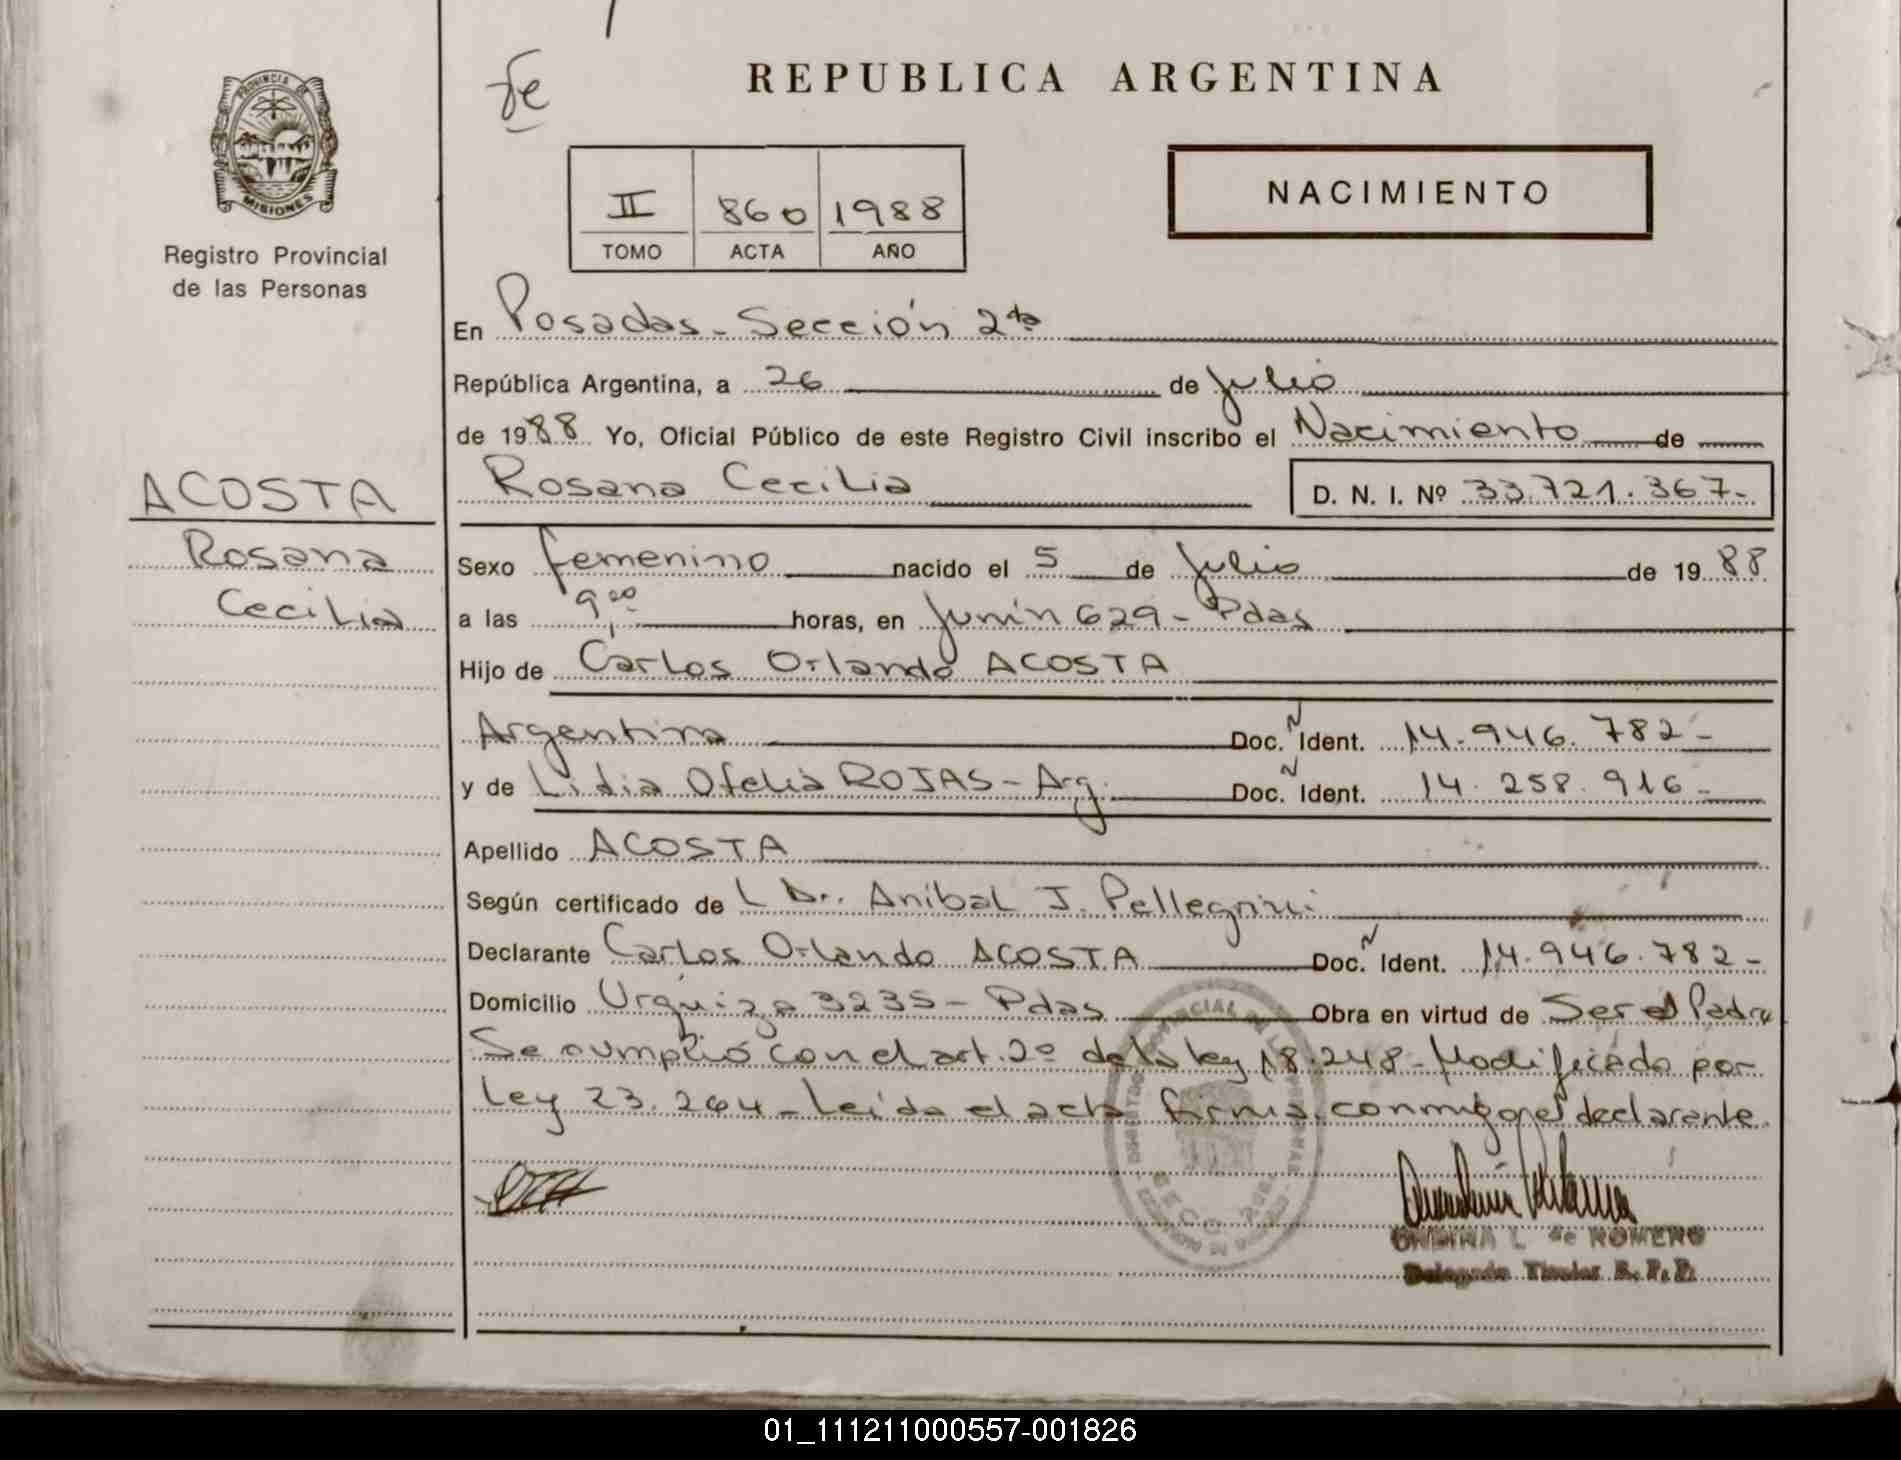 fe
REPUBLICA ARGENTINA
PROVINCIA DE
MISIONES
Registro Provincial
de las Personas
II 860 1988
TOMO ACTA AÑO
NACIMIENTO
En Posadas - Sección 2da
República Argentina, a 26 de Julio
de 1988 Yo, Oficial Público de este Registro Civil inscribo el Nacimiento de
Rosana Cecilia D. N. I. Nº 33.721.367-
ACOSTA
Rosana
Cecilia
Sexo femenino nacido el 5 de Julio de 1988
a las 9,00 horas, en Junín 629 - Pdas
Hijo de Carlos Orlando ACOSTA
Argentina Doc. Ident. 14.946.782-
y de Lidia Ofelia ROJAS - Arg. Doc. Ident. 14.258.916-
Apellido ACOSTA
Según certificado de L Dr. Aníbal J. Pellegrini
Declarante Carlos Orlando ACOSTA Doc. Ident. 14.946.782-
Domicilio Urquiza 3235 - Pdas Obra en virtud de Ser el Padre
Se cumplió con el art. 2º de la ley 18.248 - Modificado por
Ley 23.264 - Leída el acta firma conmigo el declarante
ONDINA L. de ROMERO
Delegada Titular R. P. P.
01_111211000557-001826